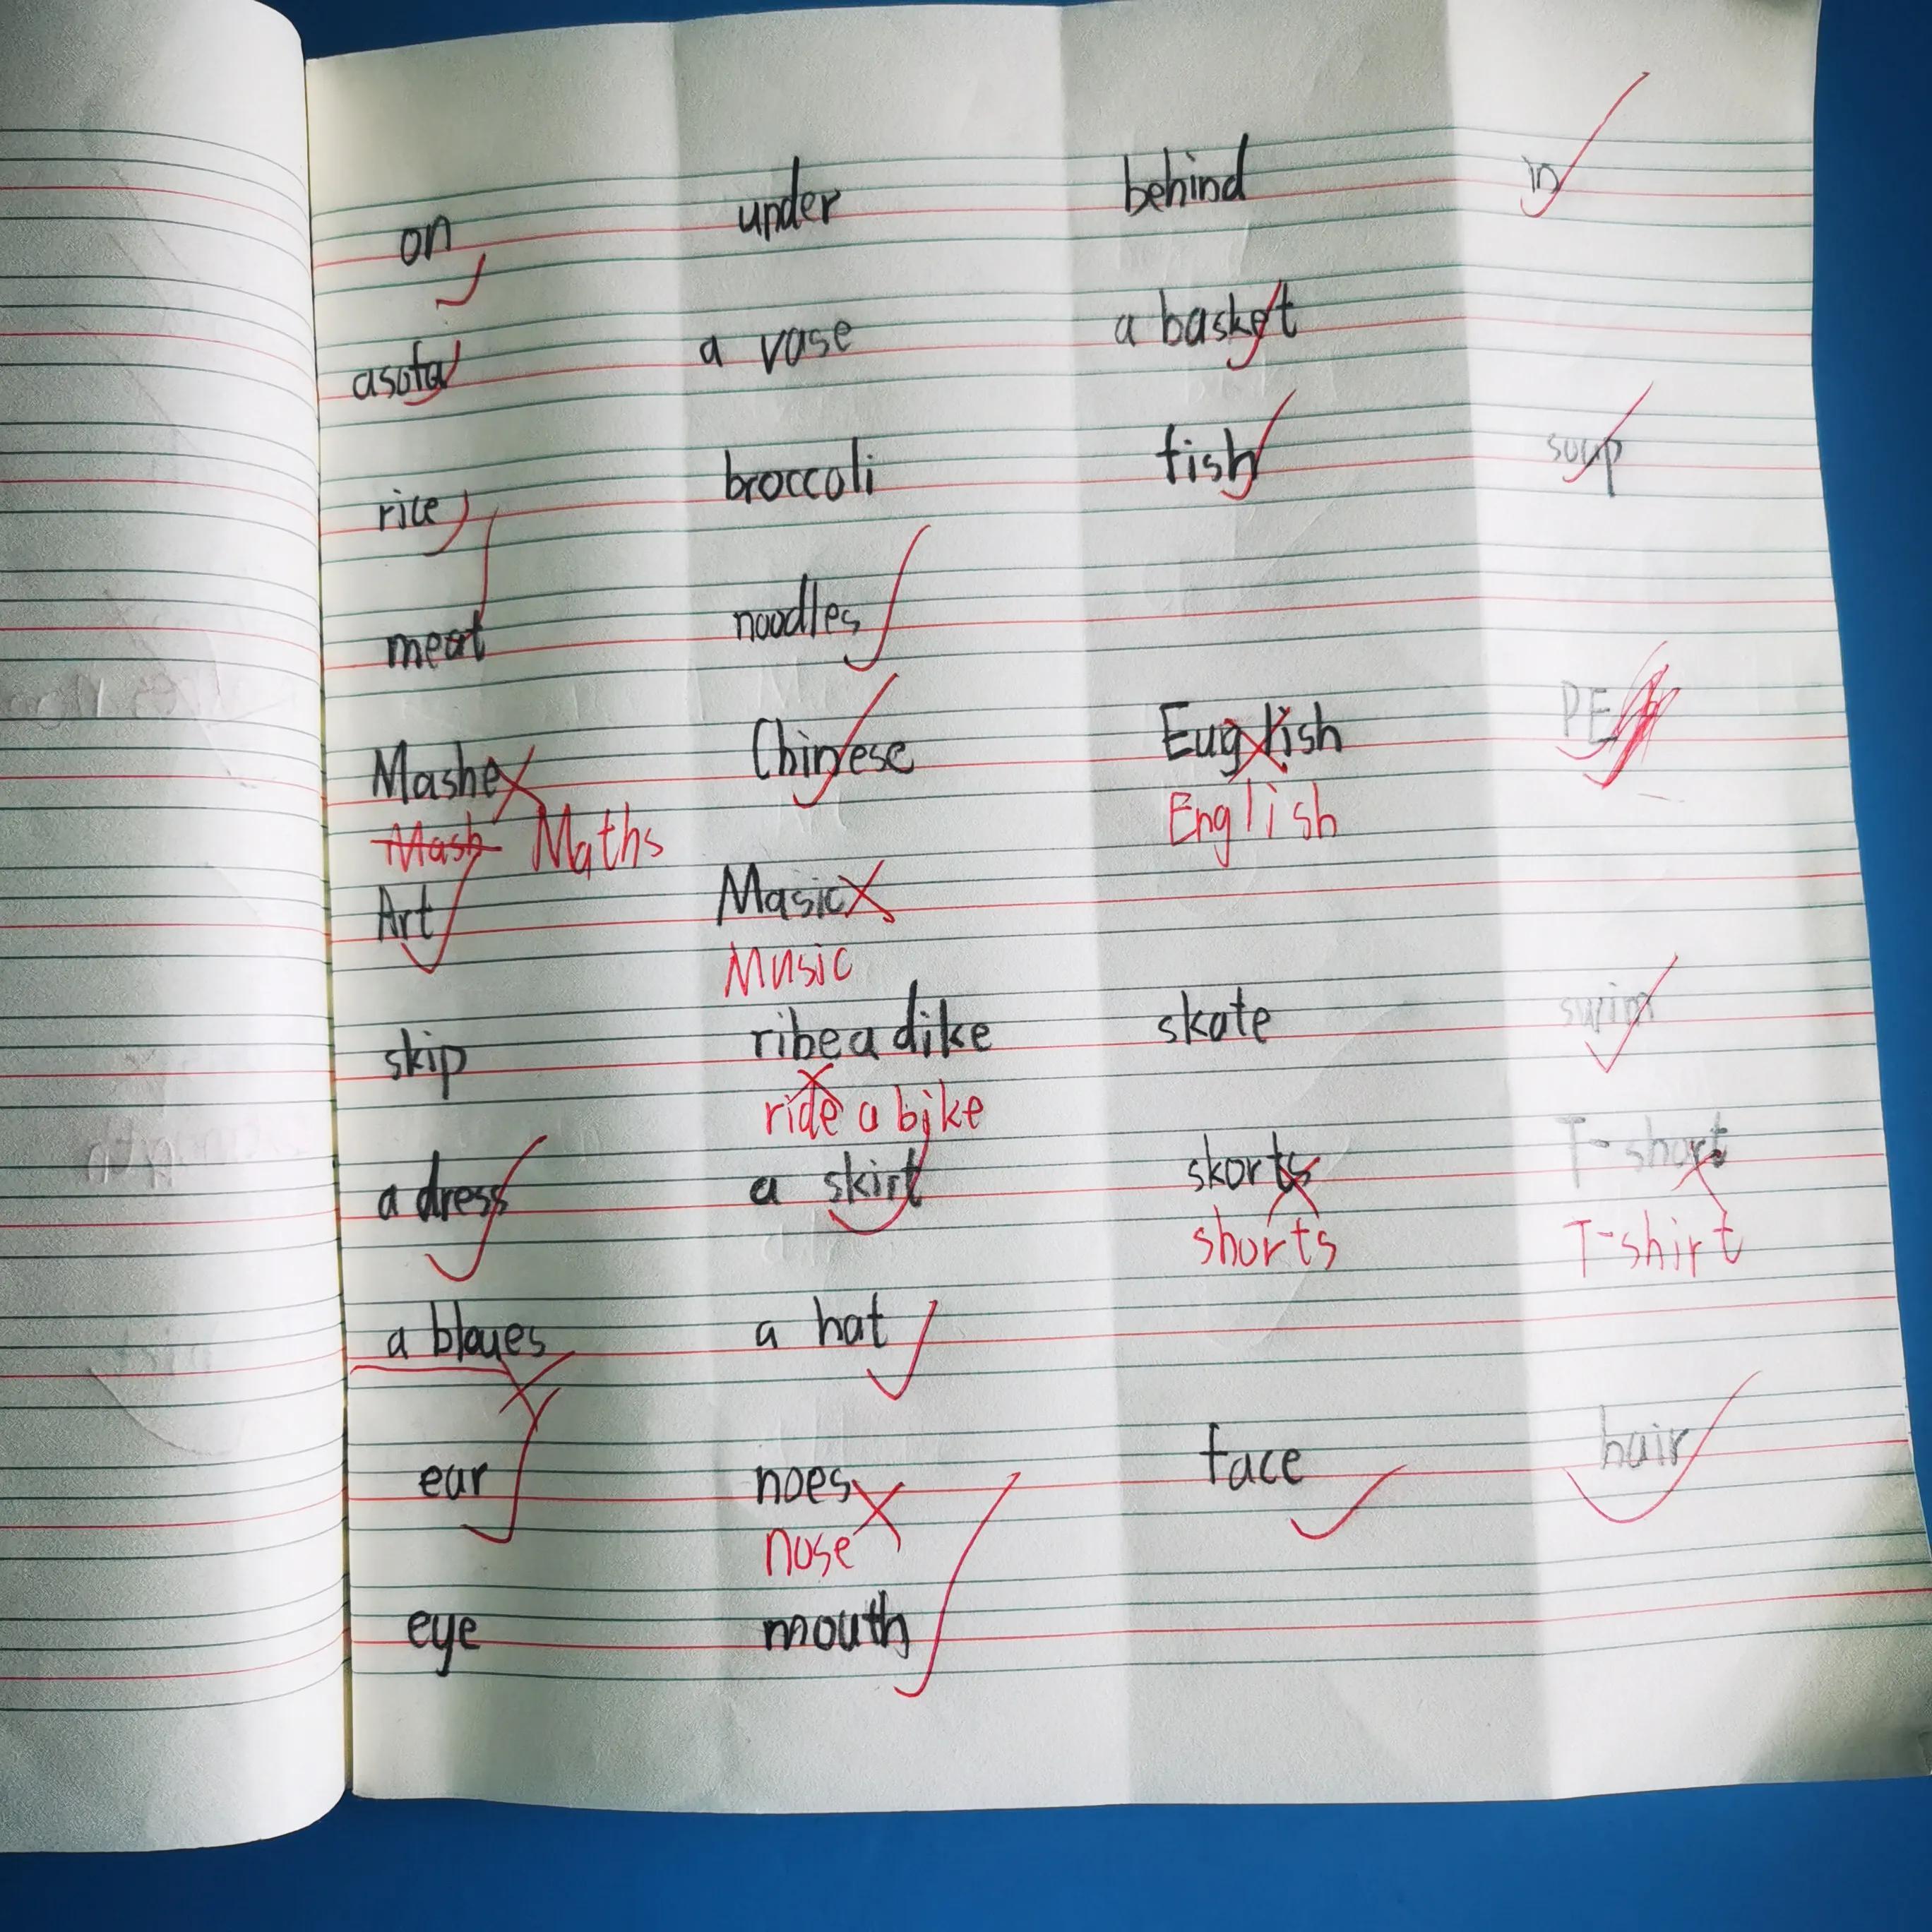 on under behind in
asofa a vase a basket
rice broccoli fish soup
meat noodles
Mashe Chinese Euglish PE
Mash Maths English
Art Masic
Music
skip ribe a dike skate swim
ride a bike
a dress a skirt skorts T-short
shorts T-shirt
a bloues a hat
ear noes face hair
nose
eye mouth